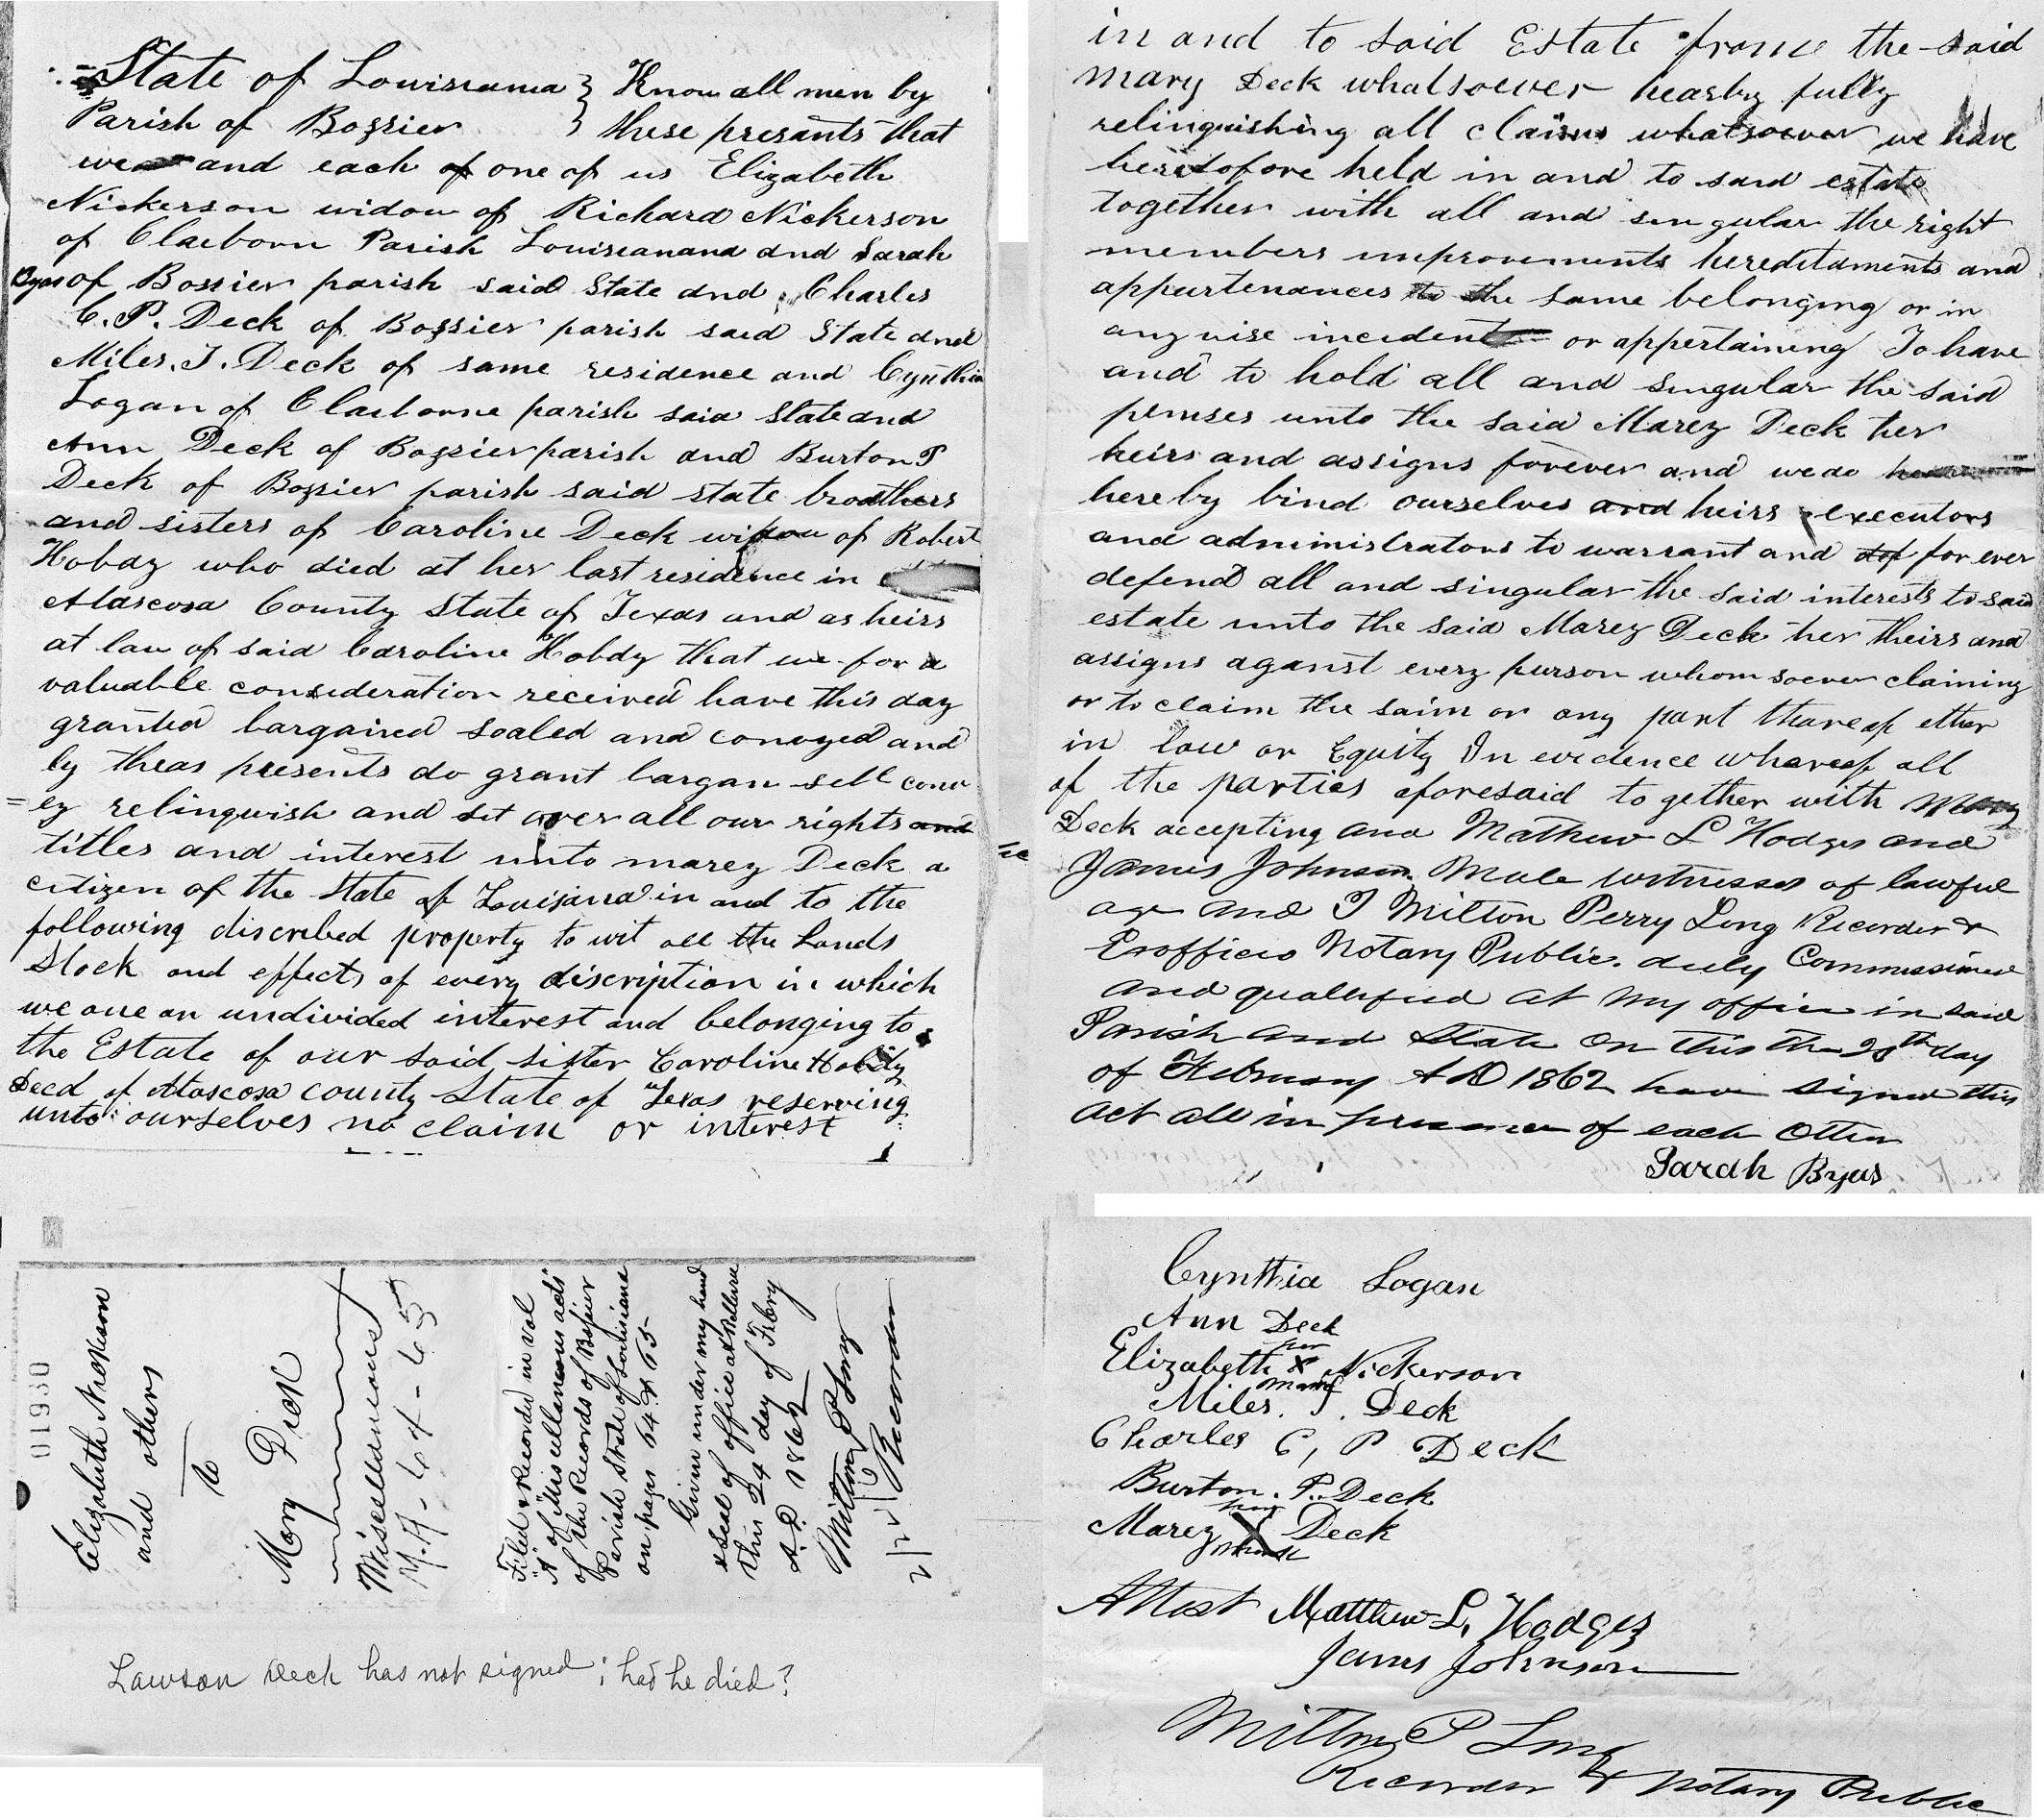 State of Louiseama } Know all men by
Parish of Bossier } these presants that
we and each of one of us Elizabeth
Nickerson widow of Richard Nickerson
of Claeborn Parish Louiseanana and Sarah
Byas of Bossier parish said State and Charles
C. P. Deck of Bossier parish said State and
Miles. J. Deck of same residence and Cynthia
Logan of Claeborne parish said State and
Ann Deck of Bossier parish and Burton P
Deck of Bossier parish said state broathers
and sisters of Caroline Deck widow of Robert
Hobdy who died at her last residence in
Atascosa County State of Texas and as heirs
at law of said Caroline Hobdy that we for a
valuable consideration received have this day
granted bargained sealed and convayed and
by theas presents do grant bargan sell conv
=ey relinquish and set over all our rights and
titles and interest unto marey Deck a
citizen of the State of Louisiana in and to the
following discribed property to wit all the Lands
Stock and effects of every discription in which
we one an undivided interest and belonging to
the Estate of our said sister Caroline Hobdy
Decd of Atascosa county State of Texas reserving
unto ourselves no claim or interest
in and to said Estate from the said
mary Deck whatsoever hearby fully
relinquishing all claims whatsoever we have
heretofore held in and to said estate
together with all and singular the right
members improvements hereditaments and
appurtenances to the same belonging or in
any wise incident or appertaining To have
and to hold all and singular the said
pemses unto the said Marey Deck her
heirs and assigns forever and we do
hereby bind ourselves and heirs executors
and administrators to warrant and def for ever
defend all and singular the said interests to said
estate unto the said Marey Deck her theirs and
assigns aganst every purson whom soever claiming
or to claim the saim or any part thareof ether
in law or Equity In evidence whareof all
of the parties aforesaid together with Mary
Deck accepting and Mathew L Hodges and
James Johnson Male witnesses of lawful
age and I Milton Perry Long Recorder &
Exofficio Notary Public. duly Commissioned
and qualified at my office in said
Parish and State on this the 20th day
of February A D 1862 have signed this
act all in presence of each other
Sarah Byas
01930
Elizabeth Nickerson
and others
to
Mary Deck
Miscellaneous
M. A - 64 - 65
Filed & Recorded in Vol
"A" of Miscellaneous acts
of the Records of Bossier
Parish State of Louisiana
on pages 64 & 65
Given under my hand
& seal of office at Bellevue
this 24 day of Febry
A. D. 1862
Milton P Long
Recorder
Lawson Deck has not signed; had he died?
Cynthia Logan
Ann Deck
her
Elizabeth X Nickerson
mark
Miles. J. Deck
Charles C, P Deck
Burton. P. Deck
her
Marey X Deck
mark
Attest Matthew L. Hodges
James Johnson
Milton P Long
Recorder & Notary Public